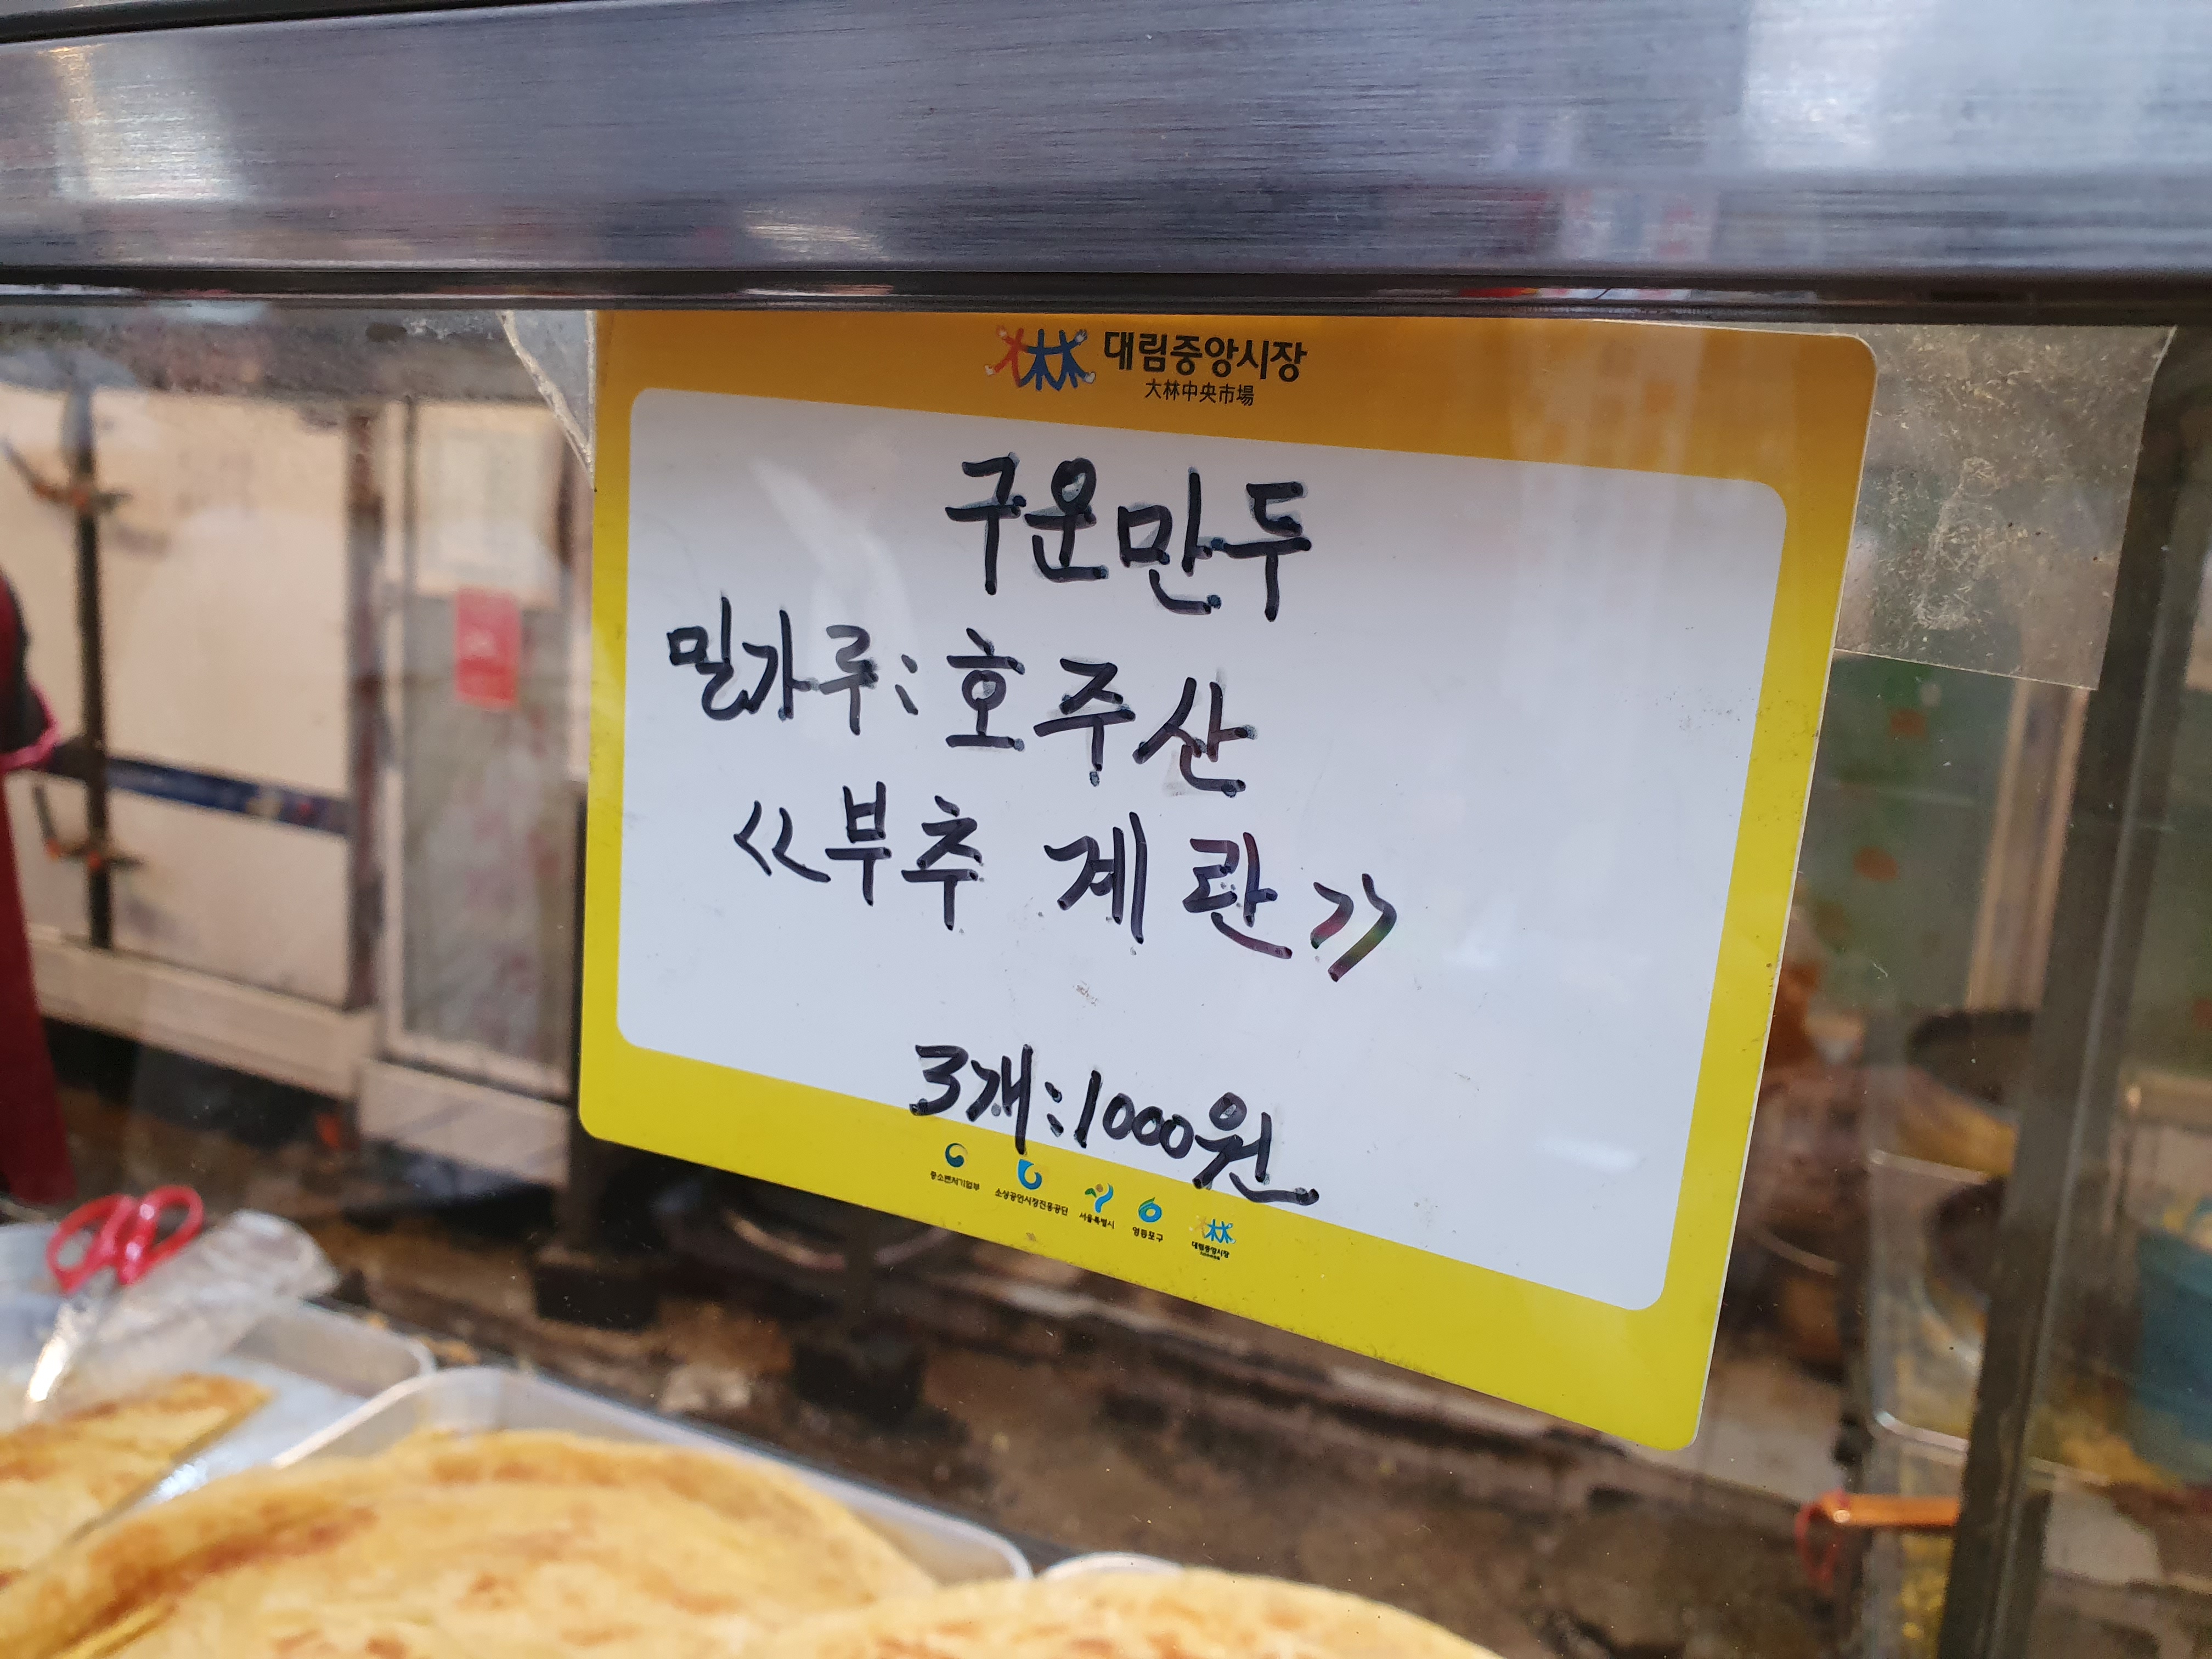 대림중앙시장
大林中央市場
구운만두
밀가루:호주산
《부추 계란》
3개:1000원
중소벤처기업부
소상공인시장진흥공단
서울특별시
영등포구
대림중앙시장